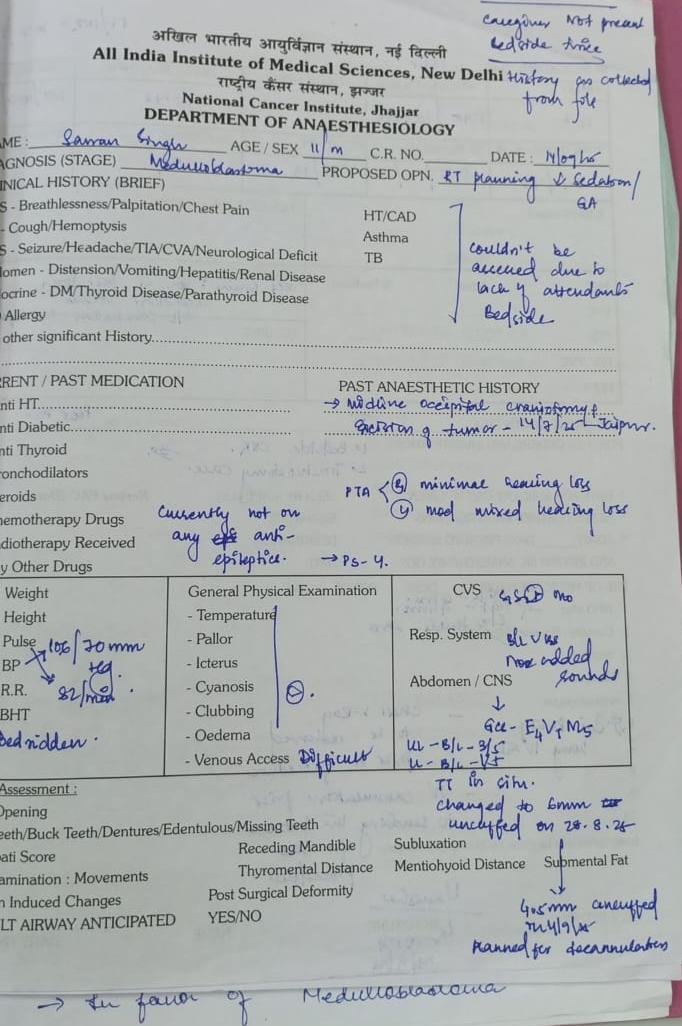 Caregiver Not present
Bedside twice
History as collected
from file
अखिल भारतीय आयुर्विज्ञान संस्थान, नई दिल्ली
All India Institute of Medical Sciences, New Delhi
राष्ट्रीय कैंसर संस्थान, झज्जर
National Cancer Institute, Jhajjar
DEPARTMENT OF ANAESTHESIOLOGY
AME: Singh AGE / SEX 11/m C.R. NO. DATE:
AGNOSIS (STAGE) Medulloblastoma PROPOSED OPN. RT planning ↓ Sedation/
GA
INICAL HISTORY (BRIEF)
S - Breathlessness/Palpitation/Chest Pain HT/CAD
- Cough/Hemoptysis Asthma
S - Seizure/Headache/TIA/CVA/Neurological Deficit TB
lomen - Distension/Vomiting/Hepatitis/Renal Disease
ocrine - DM/Thyroid Disease/Parathyroid Disease
Allergy
couldn't be
assessed due to
lack of attendants
Bedside
other significant History
RRENT / PAST MEDICATION PAST ANAESTHETIC HISTORY
nti HT → Midline occipital craniotomy &
nti Diabetic Excision of tumor - 14/7/25 Jaipur.
nti Thyroid
ronchodilators
eroids
hemotherapy Drugs
diotherapy Received
y Other Drugs
PTA minimal hearing loss
mod mixed hearing loss
Currently not on
any anti-
epileptics. → PS-4.
Weight
Height
Pulse 106/70 mm
BP Hg.
R.R. 82/min
BHT
Bedridden.
General Physical Examination
- Temperature
- Pallor
- Icterus
- Cyanosis
- Clubbing
- Oedema
- Venous Access Difficult
CVS : S1S2 ⊕ no
Resp. System B/L VBS
No added
sounds
Abdomen / CNS
↓
GCS - E4VTM5
UL - B/L - 3/5
TT in situ.
changed to 6mm
uncuffed on 28.8.25
Assessment :
Opening
eeth/Buck Teeth/Dentures/Edentulous/Missing Teeth
ati Score Receding Mandible Subluxation
amination : Movements Thyromental Distance Mentiohyoid Distance Submental Fat
n Induced Changes Post Surgical Deformity
LT AIRWAY ANTICIPATED YES/NO
4.5mm uncuffed
Planned for decannulation
→ In favor of Medulloblastoma